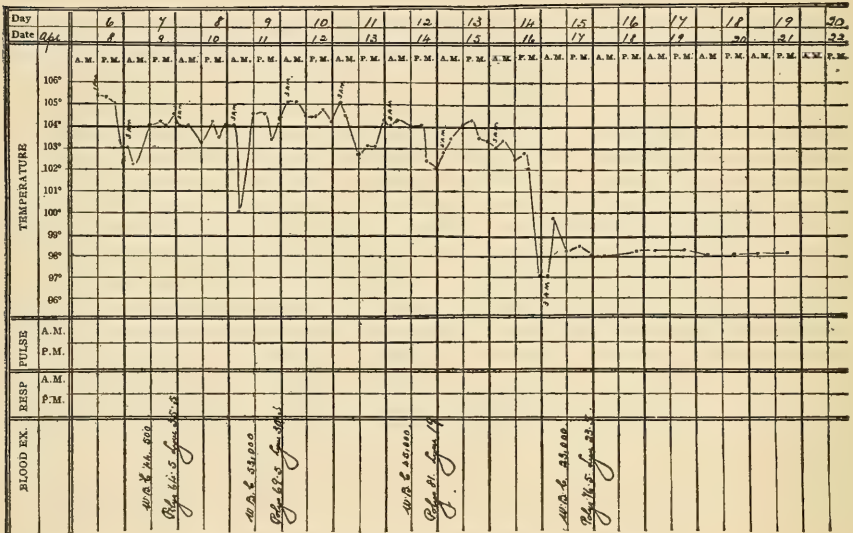 Day 6 7 8 9 10 11 12 13 14 15 16 17 18 19 20
Date Apl 8 9 10 11 12 13 14 15 16 17 18 19 20 21 22
A.M. P.M. A.M. P.M. A.M. P.M. A.M. P.M. A.M. P.M. A.M. P.M. A.M. P.M. A.M. P.M. A.M. P.M. A.M. P.M. A.M. P.M. A.M. P.M. A.M. P.M. A.M. P.M. A.M. P.M.
TEMPERATURE
106°
105°
104°
103°
102°
101°
100°
99°
98°
97°
96°
5 AM
5 AM
5 AM
5 AM
5 AM
5 AM
5 AM
5 AM
PULSE
A.M.
P.M.
RESP
A.M.
P.M.
BLOOD EX.
W.B.C. 44.500
Polys 64.5
W.B.C. 53,000
Polys 69.5
W.B.C.
Polys 81. Lym 19
W.B.C. 23,000
Polys 76.5 Lym 23.5